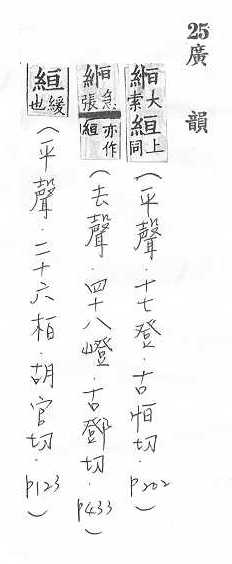 25廣韻
縆大索絙上同(平聲.十七登.古恒切.p202)
縆急張亦作絙(去聲.四十八嶝.古鄧切.p433)
絙緩也(平聲.二十六桓.胡官切.p123)